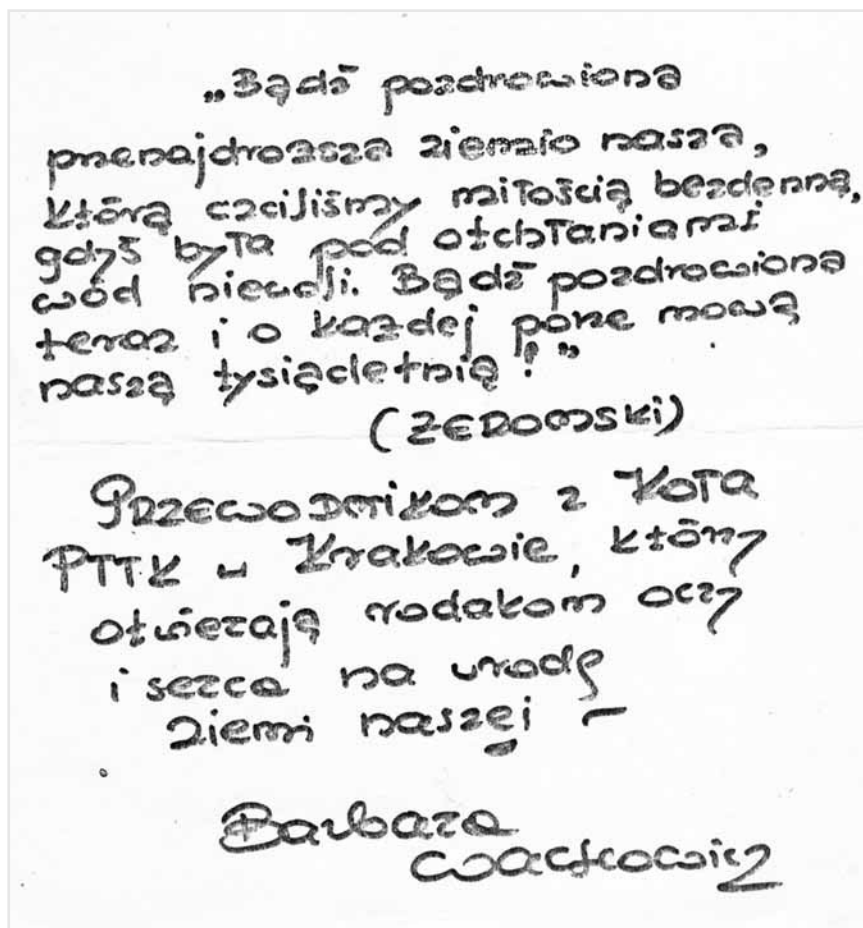 „Bądź pozdrowiona
przenajdroższa ziemio nasza,
którą czciliśmy miłością bezdenną,
gdyś była pod otchłaniami
wód niewoli. Bądź pozdrowiona
teraz i o każdej porze mową
naszą tysiącletnią!”
(ŻEROMSKI)
PRZEWODNIKOM z Koła
PTTK w Krakowie, którzy
otwierają rodakom oczy
i serca na urodę
ziemi naszej –
Barbara
Wachowicz